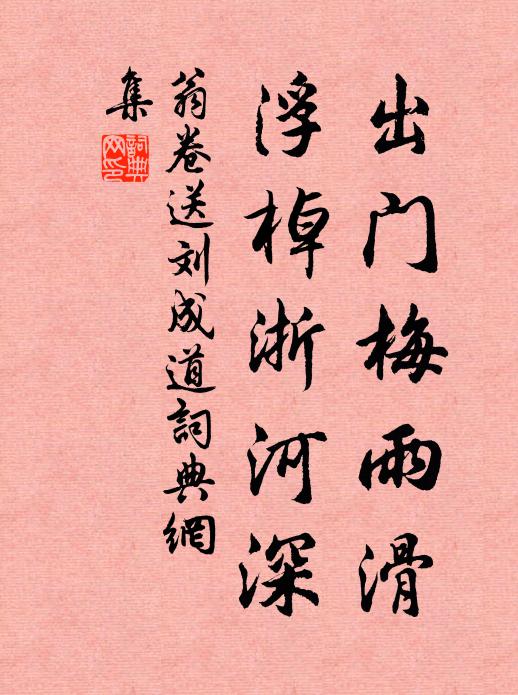 出门梅雨滑
浮棹浙河深
翁卷送刘成道詞典網
集
詞典
网印